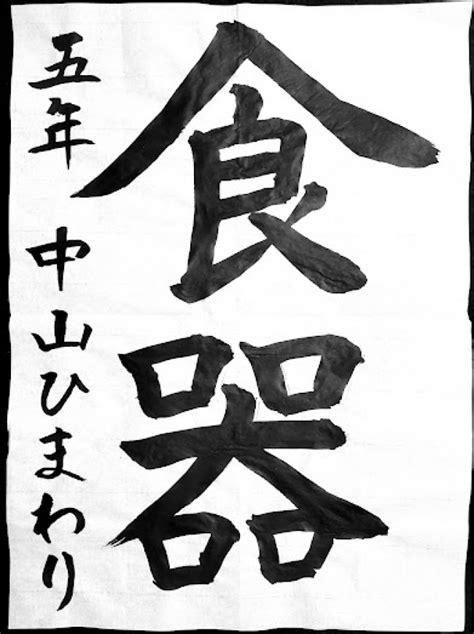 食器
五年 中山ひまわり